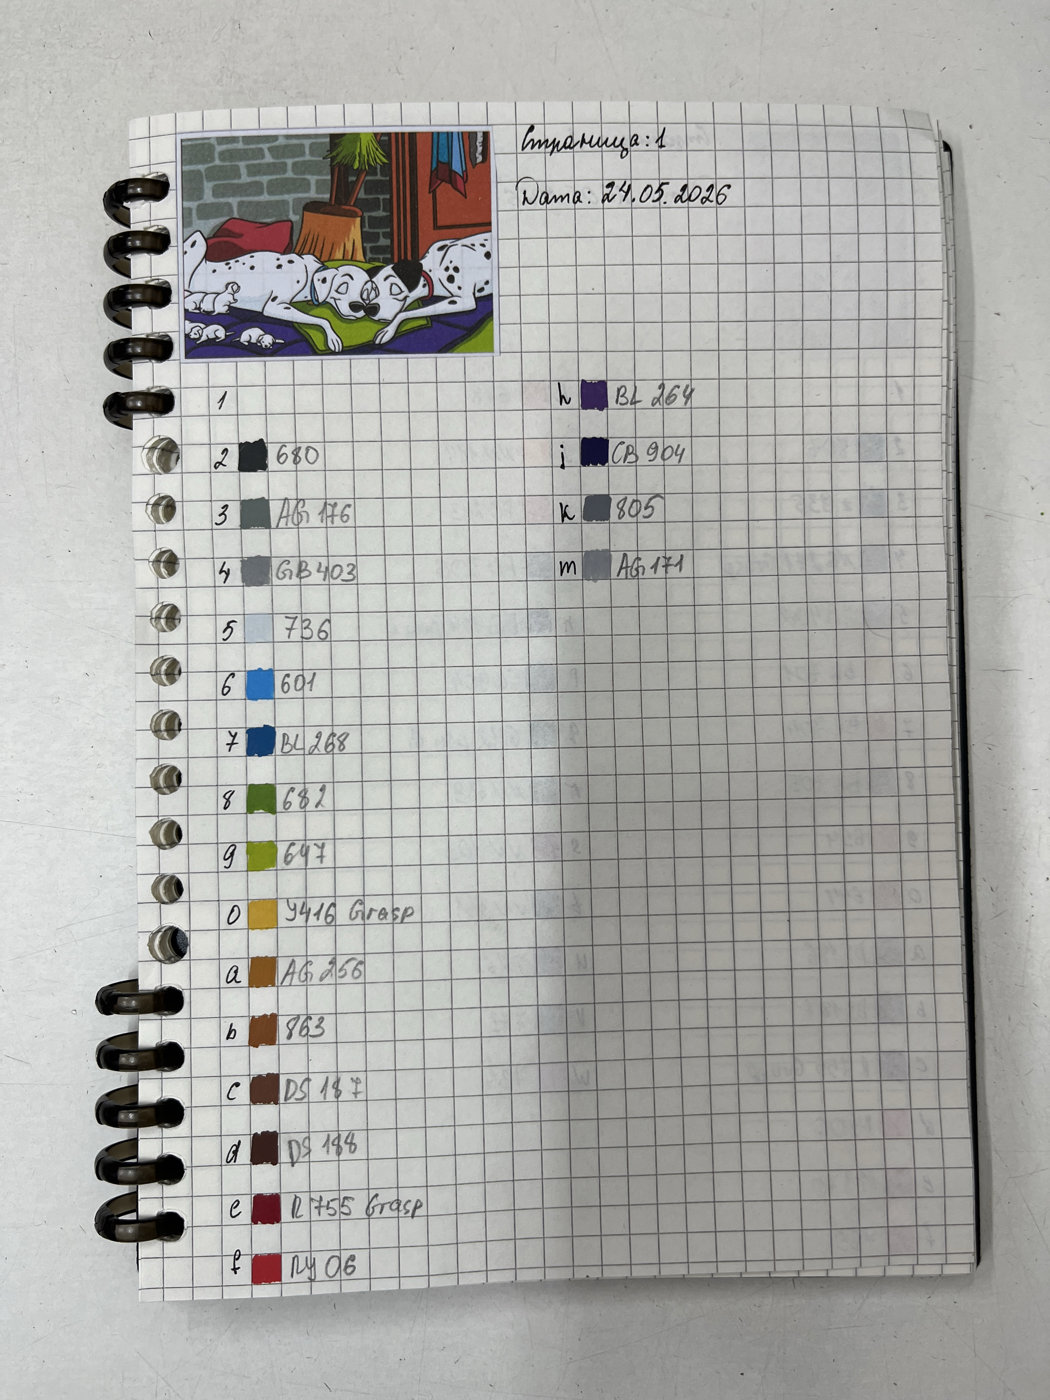 Страница: 1
Дата: 24.05.2026
1
2 680
3 AG 176
4 GB 403
5 736
6 601
7 BL 268
8 682
9 647
0 Y416 Grasp
a AG 256
b 863
c DS 187
d DS 188
e R 755 Grasp
f RY 06
h BL 264
j CB 904
k 805
m AG 171